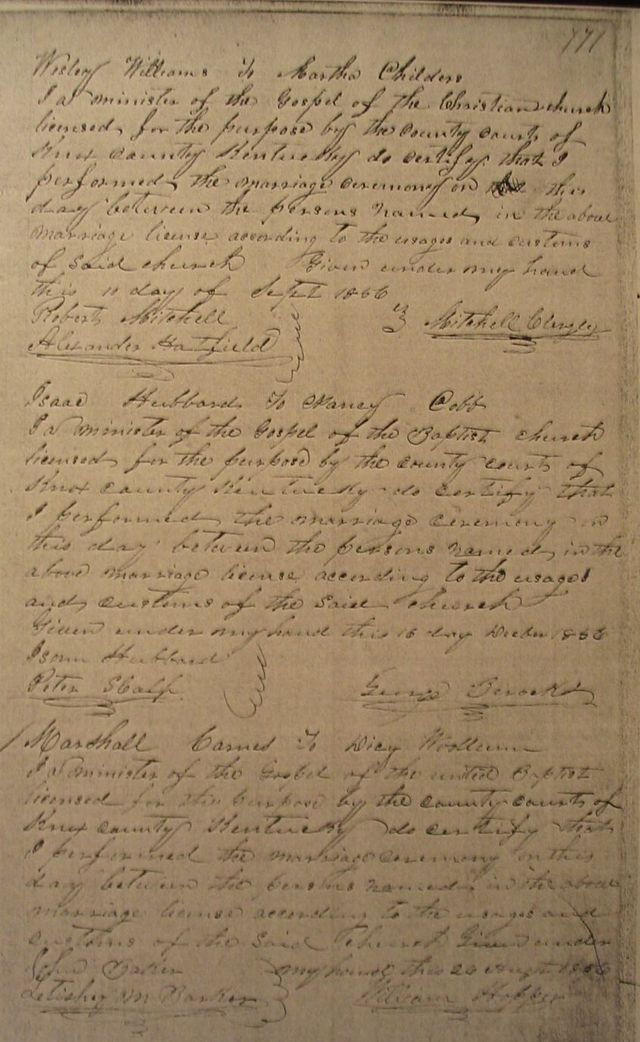 771
Wesley Williams To Martha Childers
I a minister of the Gospel of the Christian church
licensed for the purpose by the County courts of
Knox County Kentucky do certify that I
performed the marriage ceremony on this
day between the persons named in the above
marriage license according to the usages and customs
of said church Given under my hand
this 10 day of Sept 1866
Robert Mitchell Mitchell
Alexander Hatfield
Isaac Hubbard To Nancy Cobb
I a minister of the Gospel of the Baptist church
licensed for the purpose by the county courts of
Knox county Kentucky do certify that
I performed the marriage ceremony on
this day between the persons named in the
above marriage license according to the usages
and customs of the said church
Given under my hand this 16 day 1866
Hubbard
Peter George
Marshall Carnes To Dicy
I a minister of the Gospel of the united Baptist
licensed for the purpose by the county courts of
Knox county Kentucky do certify that
I performed the marriage ceremony on this
day between the persons named in the above
marriage license according to the usages and
customs of the said church Given under
Baker my hand this 26 1866
Letishey M Barker William Hopper